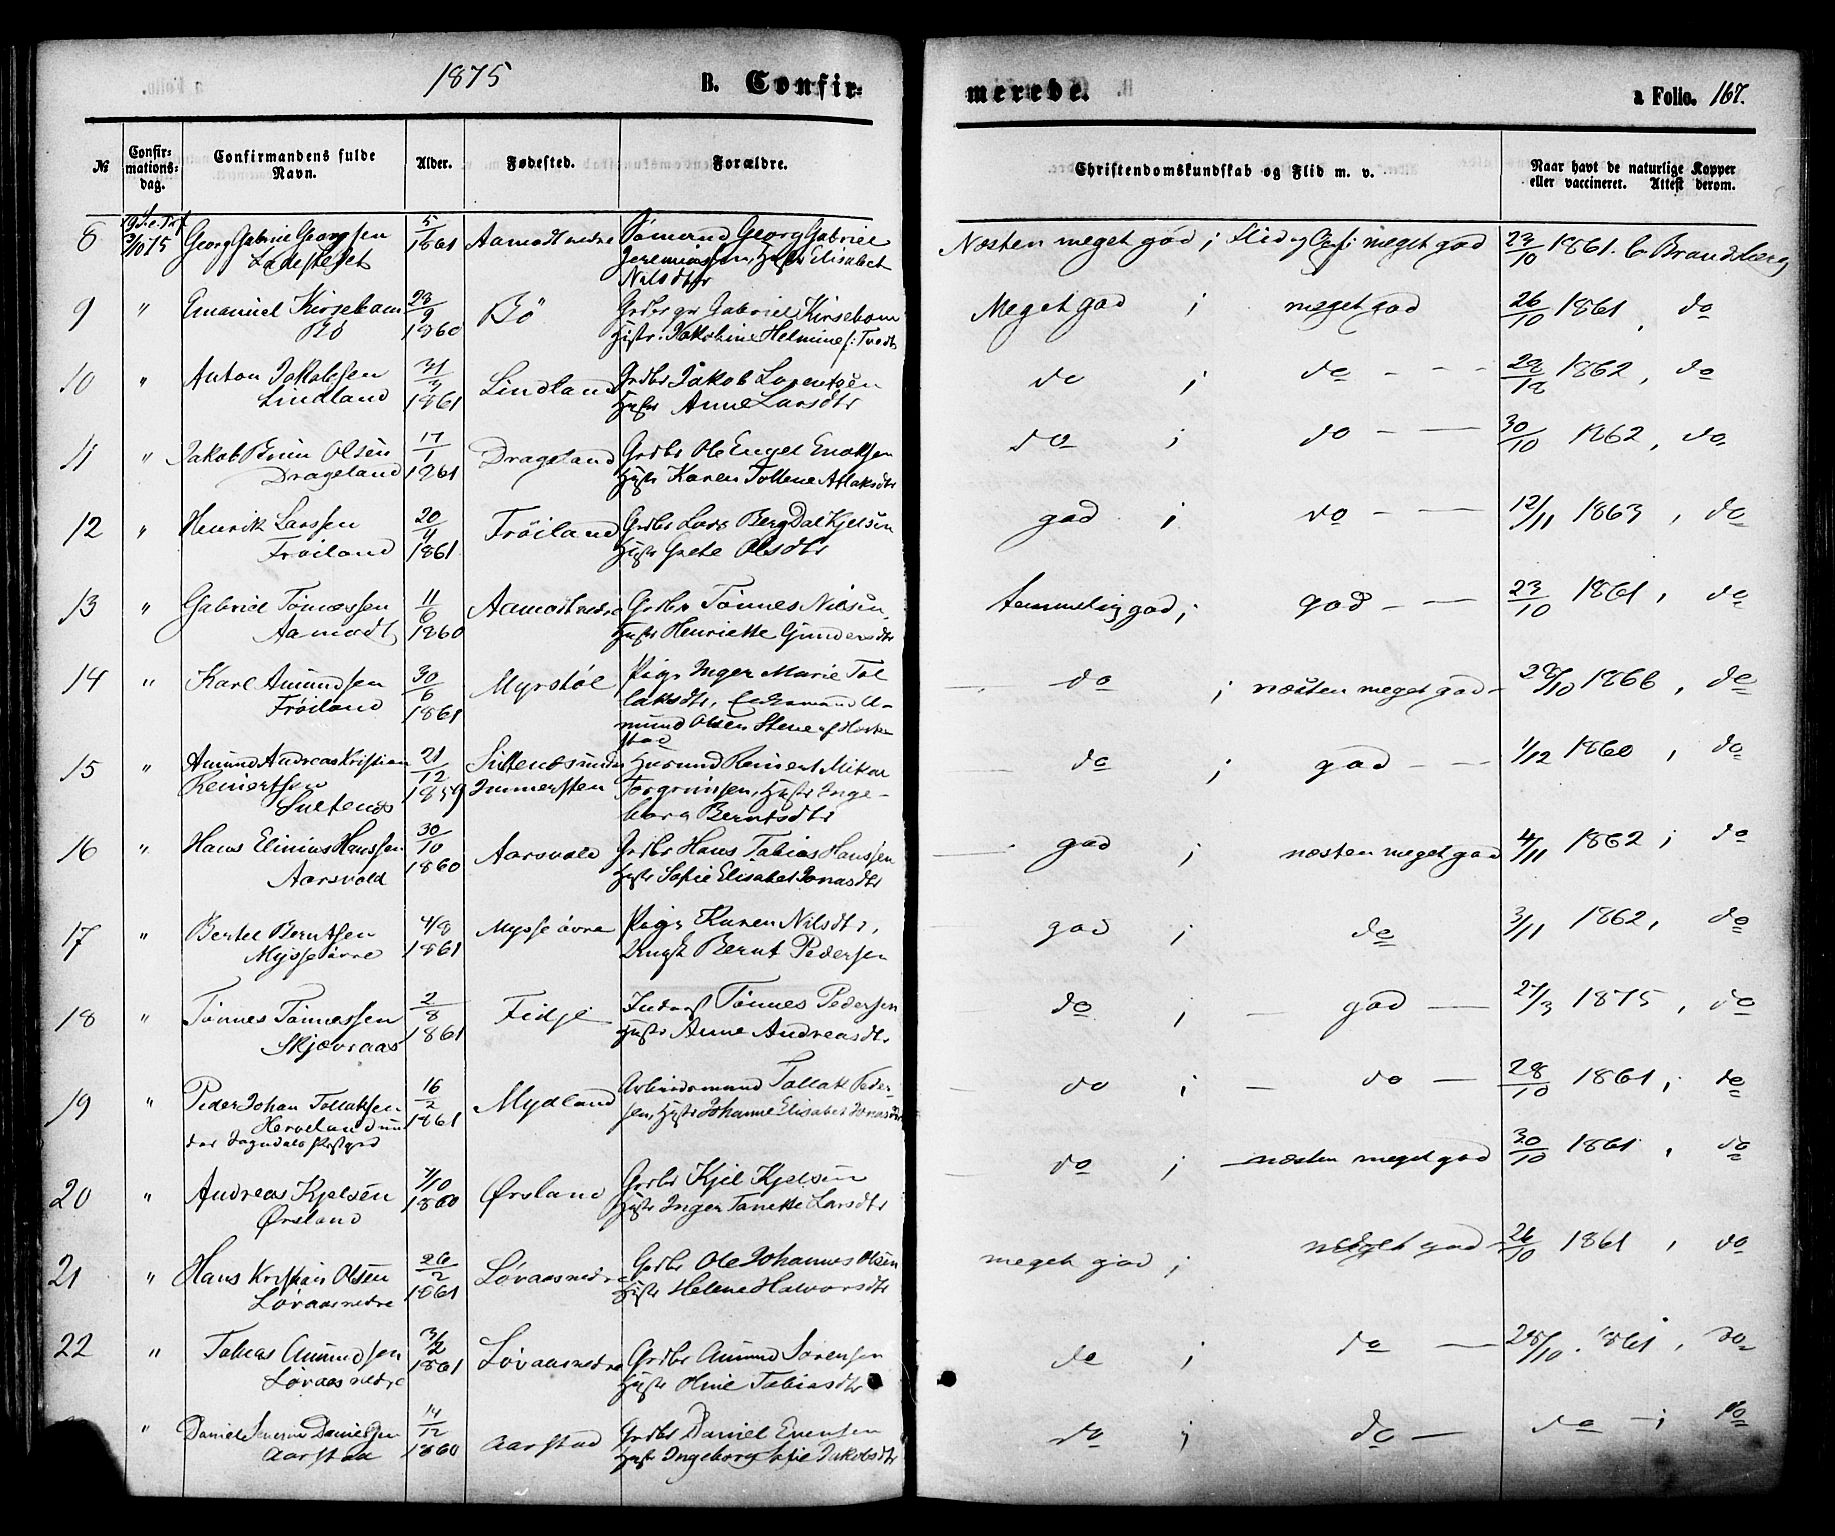 1875
B. Confir-
merede.
a Folio. 167.
№
Confir-
mations-
dag.
Confirmandens fulde
Navn.
Alder.
Fødested.
Forældre.
Christendomskundskab og Flid m. v.
Naar havt de naturlige Kopper
eller vaccineret. Attest derom.
8 3/10 75 Georg Gabriel Georgsen 5/ 1861 Aamodt nedre Sømand Georg Gabriel
Jeremiassen, Hustr Elisabet
Nilsdtr
Næsten meget god ; Flid og Opf: meget god 23/10 1861. C. Brandtberg
9 " Emanuel Kirsebom
Bö
23/9 1860 Bö Grdbrgr Gabriel Kirsebom
Hustr. Jakobine Helmine f: Tvedt
Meget god ; meget god 26/10 1861, do
10 " Anton Jakobsen
Lindland
31/ 1861 Lindland Grdbr Jakob Lorentsen
Hustr Anne Larsdtr
do ; do - - - 1862, do
11 " Jakob Olsen
Drageland
17/1 1861 Drageland Grdbr Ole Engel Enoksen
Hustr Karen Tollene Aslaksdtr
do ; do - — 30/10 1862, do
12 " Henrik Larssen
Frøiland
20/ 1861 Frøiland Grdbr Lars Berg Dal Kjelsen
Hustr Grete Olsdtr
god ; do - — 12/11 1863, do
13 " Gabriel Tønnessen
Aamodt
11/6 1860 Aamodt nedre Grdbr Tønnes Nilsen
Hustr Henriette Gundersdtr
temmelig god ; god - — 23/10 1861, do
14 " Karl Amundsen
Frøiland
30/6 1861 Myrstøl Pige Inger Marie Tol
laksdtr, Enkemand A-
mund Olsen Stene af
do ; næsten meget god - 28/10 1866, do
15 " Amund Andreas Kristian
Reinertsen
Sultenæs
21/12 1859 Sultenæs under
Immersten
Husmand Reinert Mikal
Torgrimsen, Hustr Inge-
borg Berntsdtr
do ; god - — 1/12 1860, do
16 " Hans Elinius Hanssen
Aarsvold
30/10 1860 Aarsvold Grdbr Hans Tobias Hanssen
Hustr Sofie Elisabet Jonasdtr
god ; næsten meget god 4/11 1862 ; do
17 " Bertel Berntsen
Mysse øvre
4/8 1861 Mysse øvre Pige Karen Nilsdtr,
Ungk Bernt Pedersen
god ; do 3/11 1862, do
18 " Tønnes Tønnessen
Skjævraas
2/8 1861 Fidje Tønnes Pedersen
Hustr Anne Andreasdtr
do ; — god — 27/3 1875, do
19 " Peder Johan Tollaksen
Herveland un
der Sogndals Prstgjd
16/2 1861 Mydland Arbeidsmand Tollak Peder-
sen, Hustr Johanne Elisabet Jonasdtr
do ; — do — 28/10 1861, do
20 " Andreas Kjelsen
Ørsland
7/10 1860 Ørsland Grdbr Kjel Kjelsen
Hustr Inger Tanette Larsdtr
do ; — næsten meget god 30/10 1861, do
21 " Hans Kristian Olsen
Løvaas nedre
26/2 1861 Løvaas nedre Grdbr Ole Johannes Olsen
Hustr Helene Halvorsdtr
meget god ; meget god - 26/10 1861, do
22 " Tobias Amundsen
Løvaas nedre
3/2 1861 Løvaas nedre Grdbr Amund Sørensen
Hustr Oline Tobiasdtr
do ; do — 28/10 1861, do
" Daniel Severin Danielsen
Aarstad
14/12 1860 Aarstad Grdbr Daniel Evensen
Hustr Ingeborg Sofie Jakobsdtr
do ; do — do — ; do